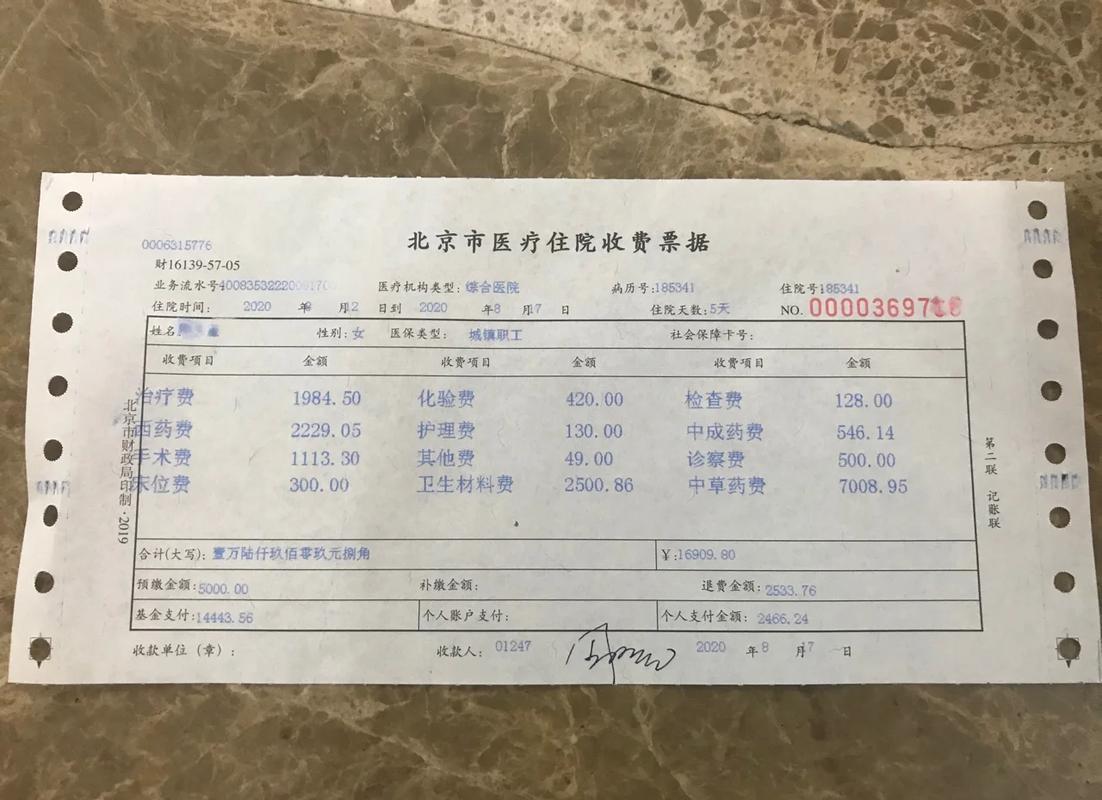 北京市医疗住院收费票据
0006315776
财16139-57-05
业务流水号 医疗机构类型：综合医院 病历号：185341 住院号185341
住院时间： 2020 年8 月12 日到 2020 年8 月17 日 住院天数：5天 NO. 0000369
姓名 性别：女 医保类型： 城镇职工 社会保障卡号：
收费项目 金额 收费项目 金额 收费项目 金额
治疗费 1984.50 化验费 420.00 检查费 128.00
西药费 2229.05 护理费 130.00 中成药费 546.14
手术费 1113.30 其他费 49.00 诊察费 500.00
床位费 300.00 卫生材料费 2500.86 中草药费 7008.95
合计(大写)： 壹万陆仟玖佰零玖元捌角 ￥：16909.80
预缴金额：5000.00 补缴金额： 退费金额：2533.76
基金支付：14443.56 个人账户支付： 个人支付金额：2466.24
收款单位（章）： 收款人： 01247 2020 年8 月17 日
北京市财政局印制·2019
第二联 记账联